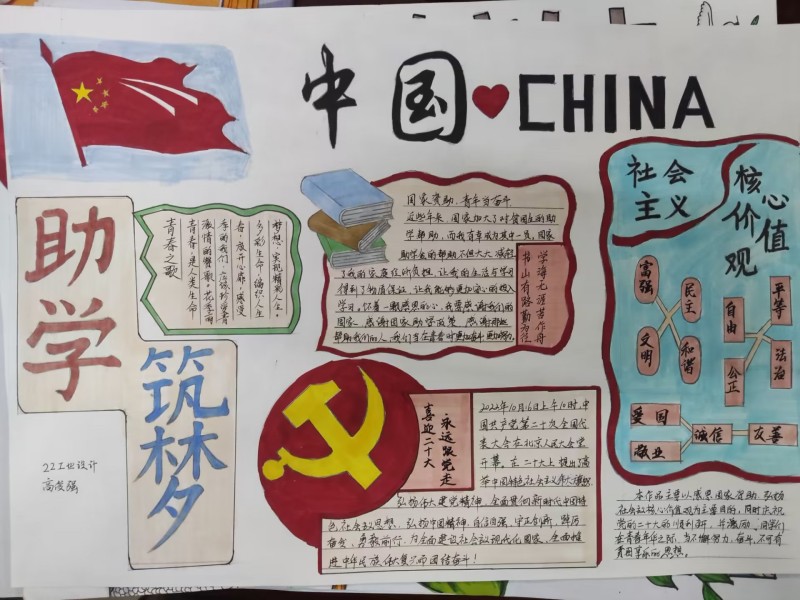 中国❤CHINA
助学
筑梦
青春之歌
青春是人类生命
梦想,实现精彩人生。
国家资助,青年当奋斗
近些年来,国家加大了对贫困生的助
学帮助,而我有幸成为其中一员,国家
助学金的帮助不但大大减轻
了我的家庭经济负担,让我的生活与学习
得到了物质保证,让我能够更加安心的投入
学习,怀着一颗感恩的心,我要感谢我们的
国家,感谢国家助学政策,感谢那些
帮助我们的人,我们当在青春时更加奋斗更加努力。
书山有路勤为径
学海无涯苦作舟
社会
主义
核心
价值
观
富强
民主
文明
和谐
自由
平等
公正
法治
爱国
敬业
诚信
友善
喜迎二十大
永远跟党走
2022年10月16日上午10时,中
国共产党第二十次全国代
表大会在北京人民大会堂
开幕,在二十大上提出了高
举中国特色社会主义伟大旗帜
弘扬伟大建党精神,全面贯彻新时代中国特
色社会主义思想,弘扬中国精神,自信自强,守正创新,踔厉
奋发,勇毅前行,为全面建设社会主义现代化国家,全面推
进中华民族伟大复兴而团结奋斗!
22工业设计
高俊强
本作品主要以感恩国家资助,弘扬
社会主义核心价值观为主要目的,同时庆祝
党的二十大的顺利召开,并激励同学们
在青春年华之际,当不懈努力,奋斗,不可有
贪图享乐的思想。